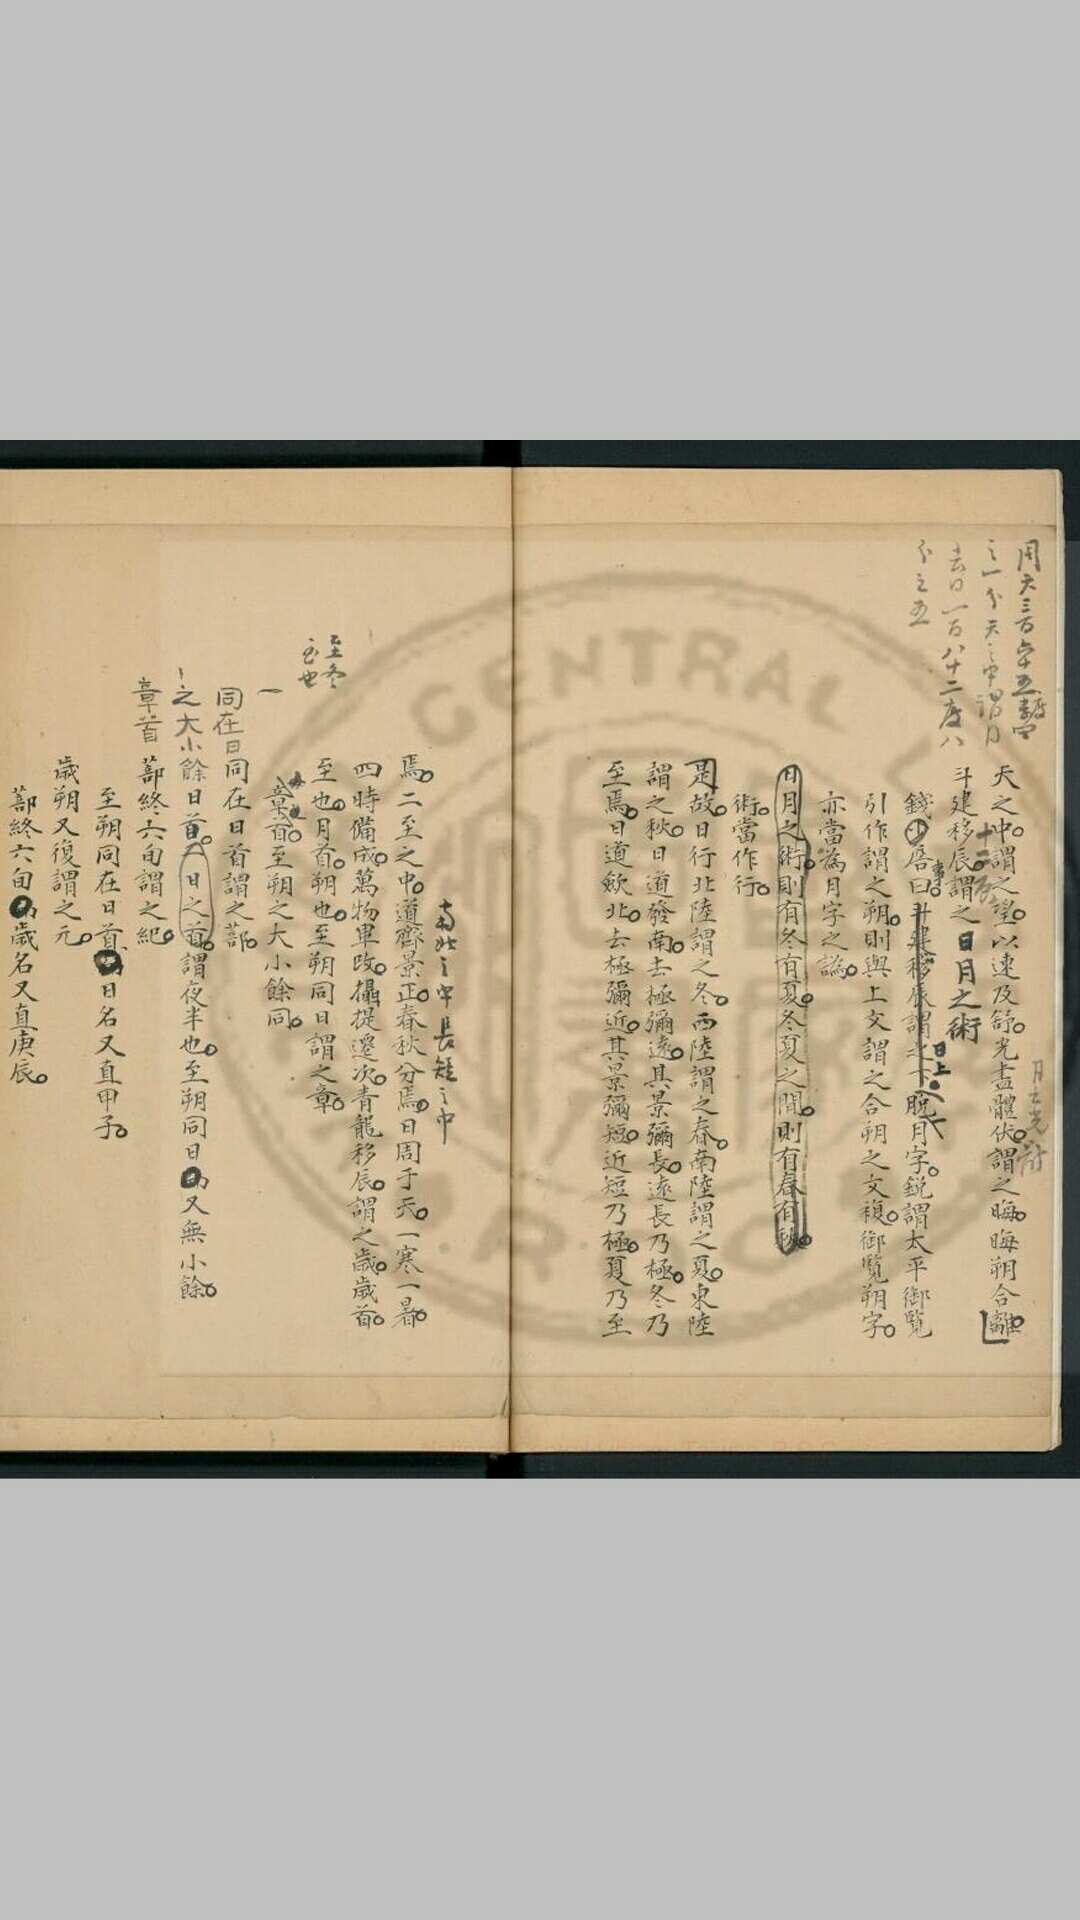 周天三百六十五度四
之一分天之中謂日
去日一百八十二度八
分之五
天之中謂之望以速及舒光盡體伏謂之晦晦朔合離
斗建移辰謂之
日月之術
錢少詹曰斗建移辰謂之下脫月字銳謂太平御覽
日上
引作謂之朔則與上文謂之合朔之文複御覽朔字
亦當為月字之譌
日月之術則有冬有夏冬夏之間則有春有秋
術當作行
是故日行北陸謂之冬西陸謂之春南陸謂之夏東陸
謂之秋日道發南去極彌遠其景彌長遠長乃極冬乃
至焉日道歛北去極彌近其景彌短近短乃極夏乃至
南北之中長短之中
焉二至之中道齊景正春秋分焉日周于天一寒一暑
四時備成萬物畢改攝提遷次青龍移辰謂之歲歲首
至冬
至也
至也月首朔也至朔同日謂之章
章首至朔之大小餘同
同在日同在日首謂之蔀
之大小餘日首一日之首謂夜半也至朔同日又無小餘
章首蔀終六旬謂之紀
至朔同在日首日名又直甲子
歲朔又復謂之元
蔀終六旬歲名又直庚辰
CENTRAL